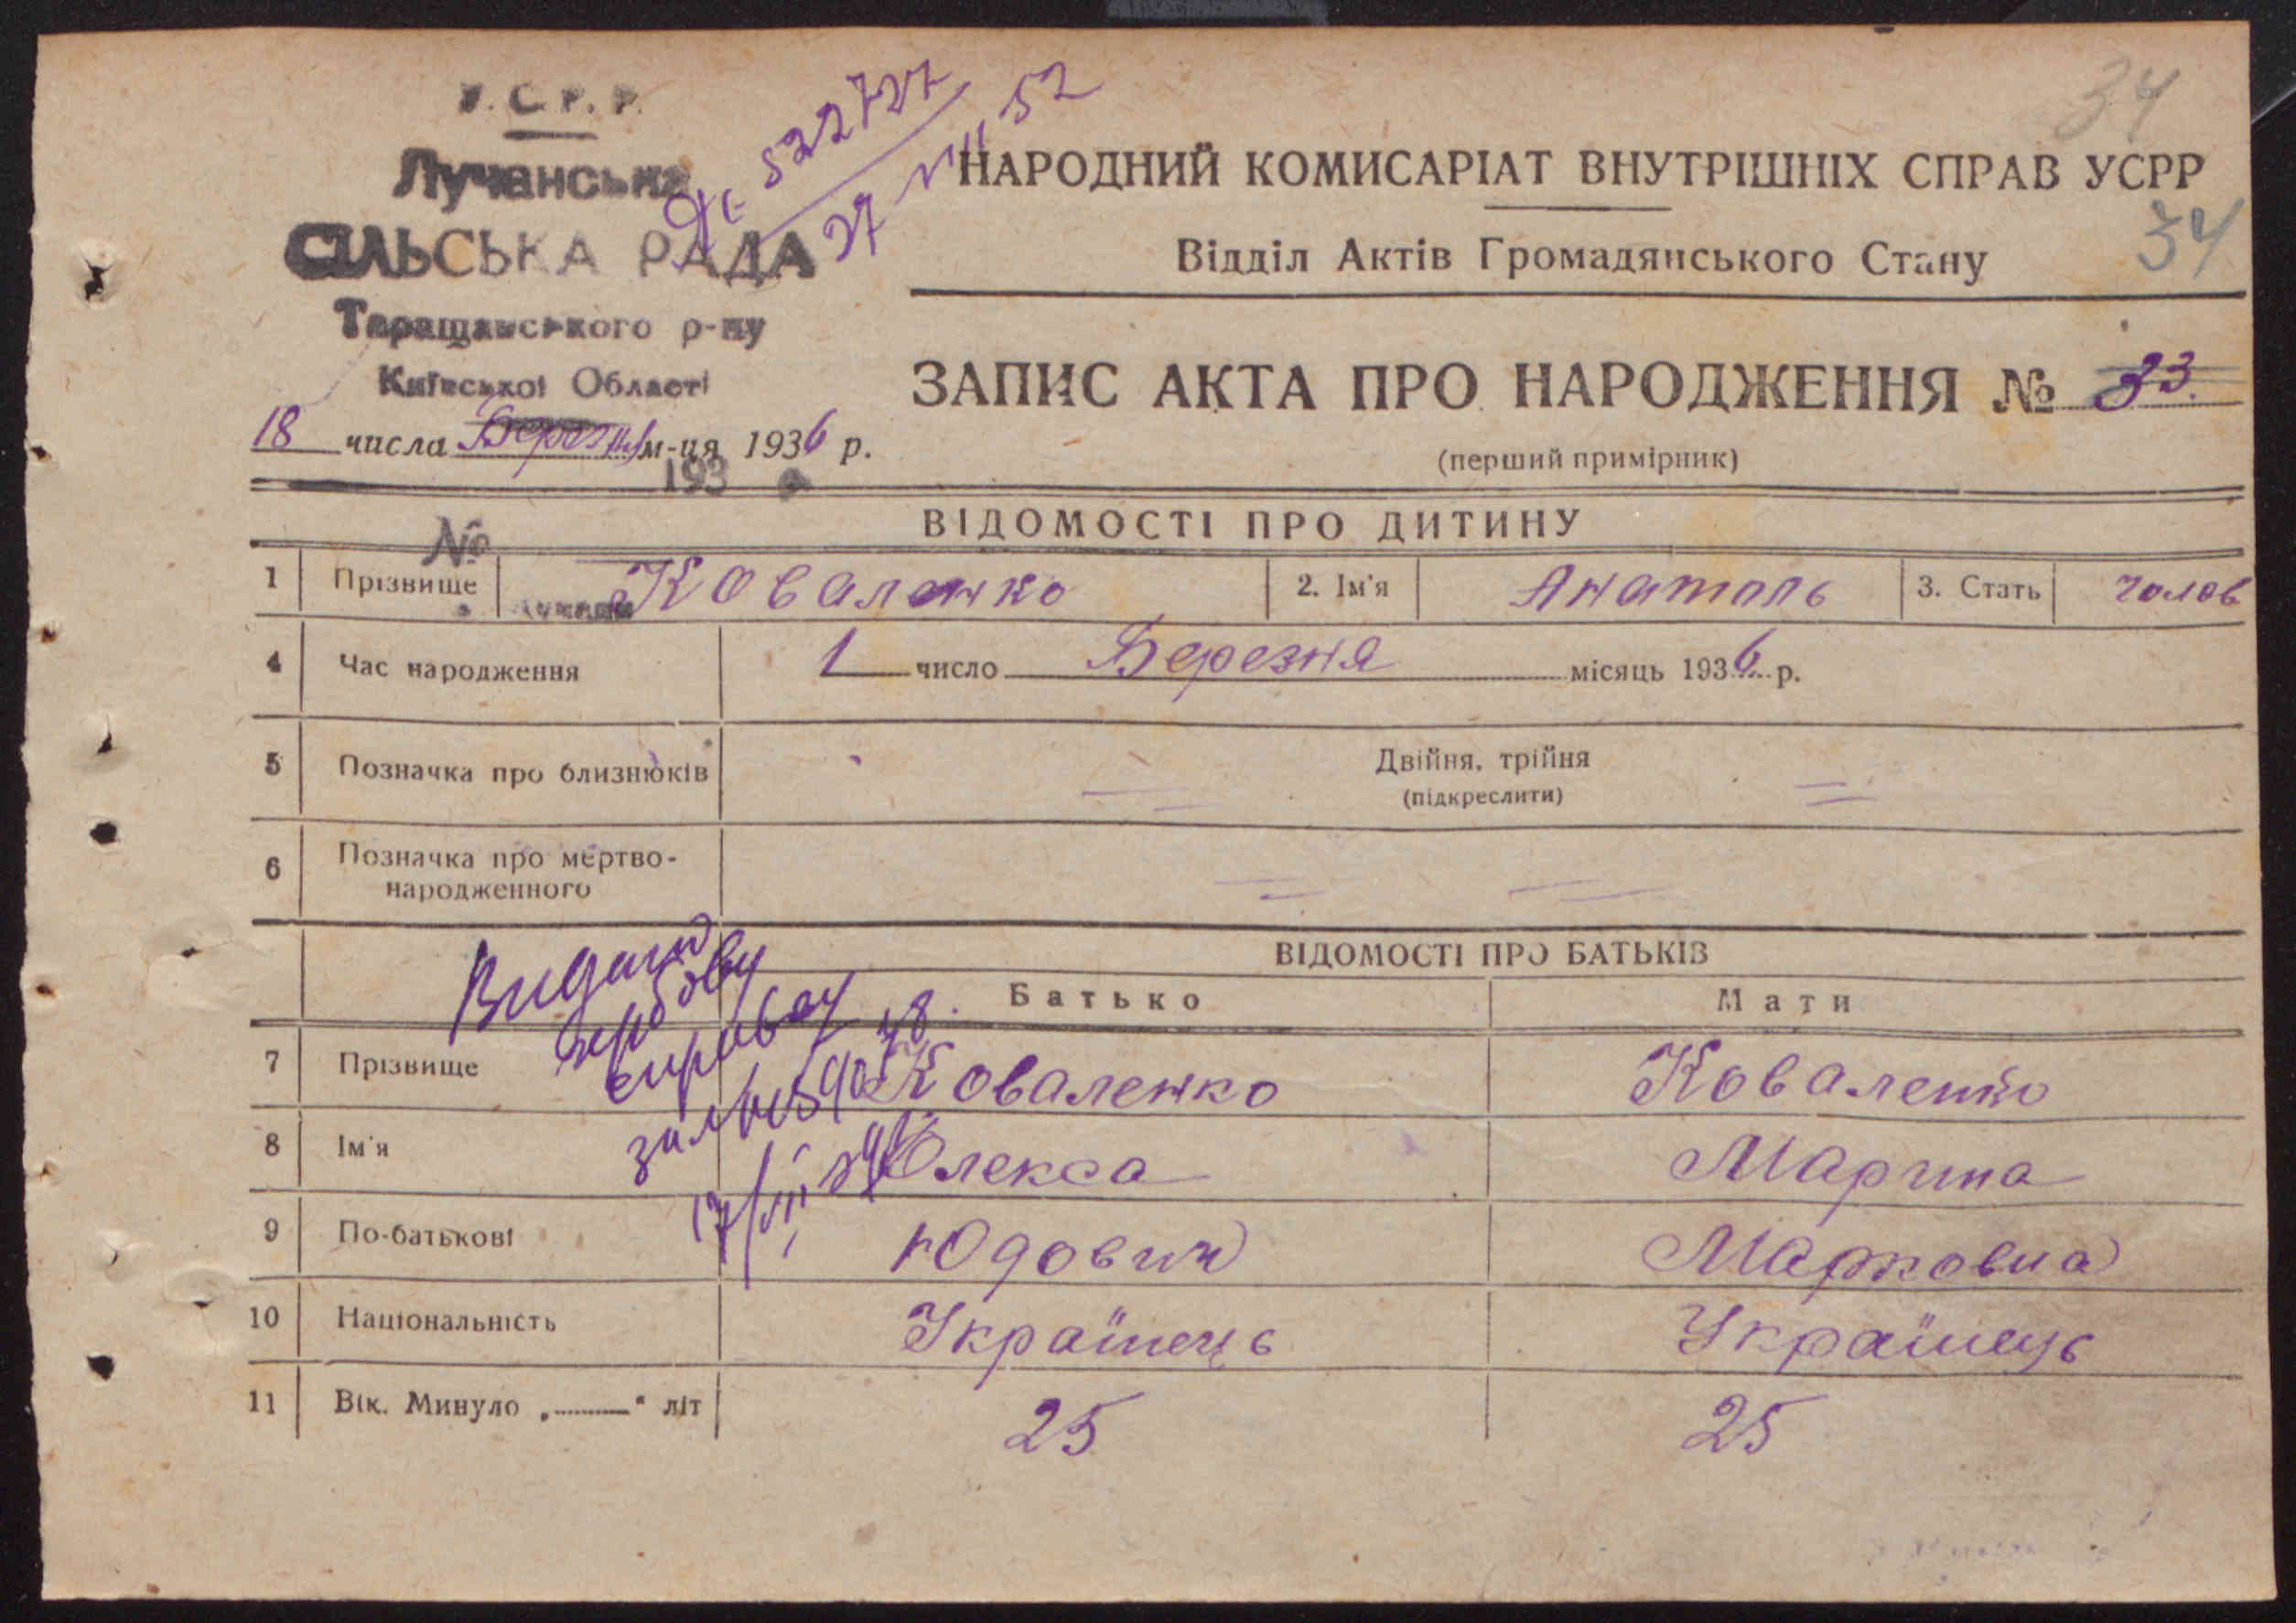 У.С.Р.Р.
Лучанська
СІЛЬСЬКА РАДА
Таращанського р-ну
Київської Області
18 числа Березня м-ця 1936 р.
193
№
522727
27 VII 52
34
34
НАРОДНИЙ КОМИСАРІАТ ВНУТРІШНІХ СПРАВ УСРР
Відділ Актів Громадянського Стану
ЗАПИС АКТА ПРО НАРОДЖЕННЯ № 33.
(перший примірник)
ВІДОМОСТІ ПРО ДИТИНУ
1 Прізвище Коваленко 2. Ім'я Анатоль 3. Стать чолов
4 Час народження 1 число Березня місяць 1936 р.
5 Позначка про близнюків Двійня, трійня
(підкреслити)
6 Позначка про мертво-
народженного
ВІДОМОСТІ ПРО БАТЬКІВ
Батько Мати
7 Прізвище Коваленко Коваленко
8 Ім'я Олекса Марина
9 По-батькові Юдович Марковна
10 Національність Українець Українець
11 Вік. Минуло „ “ літ 25 25